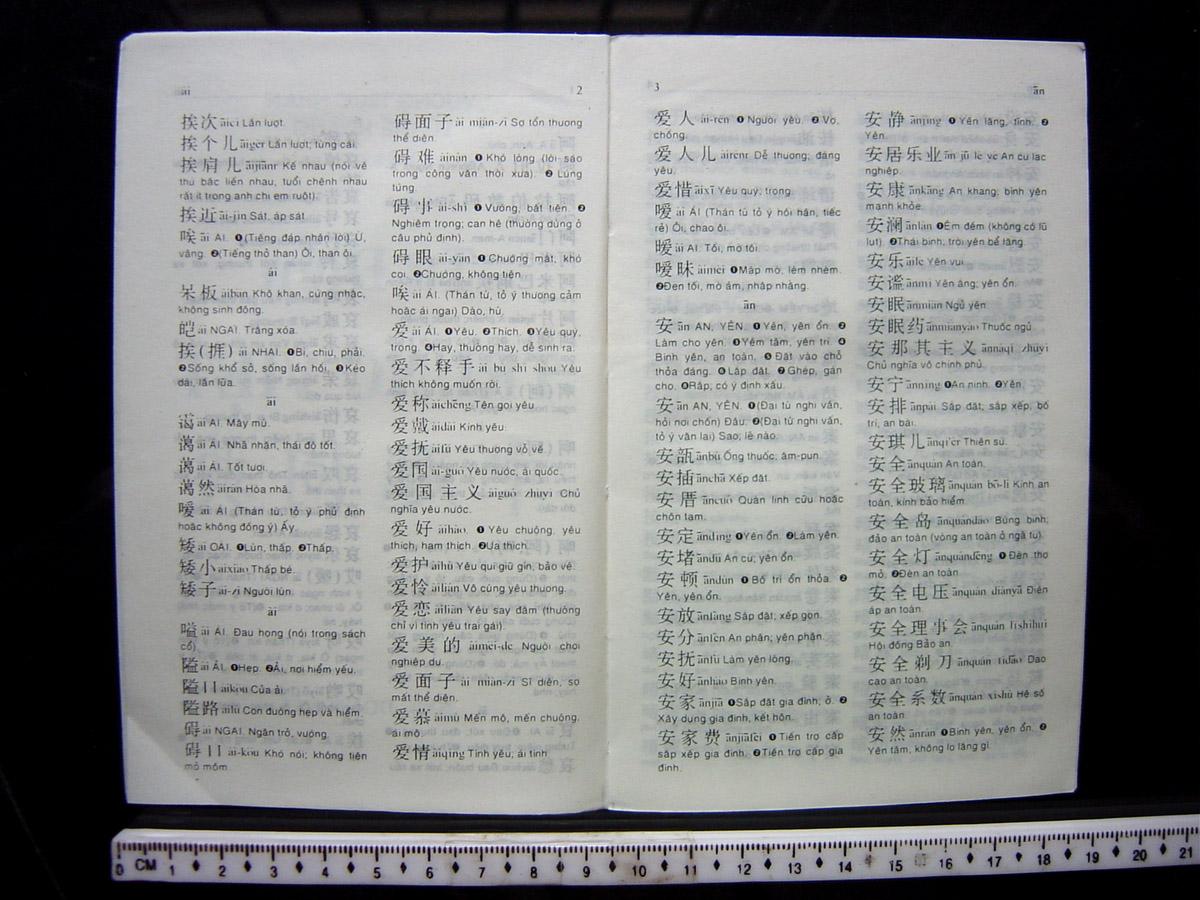 ài 2
挨次 āicì Lần lượt.
挨个儿 āigèr Lần lượt; từng cái.
挨肩儿 āijiānr Kế nhau (nói về
thứ bậc liền nhau, tuổi chênh nhau
rất ít trong anh chị em ruột).
挨近 āi-jìn Sát, áp sát.
唉 āi AI. ❶(Tiếng đáp nhận lời) Ừ,
vâng. ❷(Tiếng thở than) Ôi, than ôi.
ái
呆板 áibǎn Khô khan, cứng nhắc,
không sinh động.
皑 ái NGAI. Trắng xóa.
挨(捱) ái NHAI. ❶Bị, chịu, phải.
❷Sống khổ sở, sống lần hồi. ❸Kéo
dài, lần lữa.
ǎi
霭 ǎi ÁI. Mây mù.
蔼 ǎi ÁI. Nhã nhặn, thái độ tốt.
蔼 ǎi ÁI. Tốt tươi.
蔼然 ǎirán Hòa nhã.
嗳 ǎi ÁI (Thán từ, tỏ ý phủ định
hoặc không đồng ý) Ấy.
矮 ǎi OẢI. ❶Lùn, thấp. ❷Thấp.
矮小 ǎixiǎo Thấp bé.
矮子 ǎi-zi Người lùn.
ài
嗌 ài ÁI. Đau họng (nói trong sách
cổ).
隘 ài ẢI. ❶Hẹp. ❷Ải, nơi hiểm yếu.
隘口 àikǒu Cửa ải.
隘路 àilù Con đường hẹp và hiểm.
碍 ài NGẠI. Ngăn trở, vướng.
碍口 ài-kǒu Khó nói; không tiện
mở mồm.
碍面子 ài miàn-zi Sợ tổn thương
thể diện.
碍难 àinán ❶ Khó lòng (lối sáo
trong công văn thời xưa). ❷ Lúng
túng.
碍事 ài-shì ❶ Vướng, bất tiện. ❷
Nghiêm trọng; can hệ (thường dùng ở
câu phủ định).
碍眼 ài-yǎn ❶ Chướng mắt, khó
coi. ❷Chướng, không tiện.
唉 ài ÁI. (Thán từ, tỏ ý thương cảm
hoặc ái ngại) Dào, hừ.
爱 ài ÁI. ❶Yêu. ❷Thích. ❸Yêu quý,
trọng. ❹Hay, thường hay, dễ sinh ra.
爱不释手 ài bù shì shǒu Yêu
thích không muốn rời.
爱称 àichēng Tên gọi yêu.
爱戴 àidài Kính yêu.
爱抚 àifǔ Yêu thương vỗ về.
爱国 ài-guó Yêu nước, ái quốc.
爱国主义 àiguó zhǔyì Chủ
nghĩa yêu nước.
爱好 àihào. ❶ Yêu chuộng, yêu
thích, ham thích. ❷Ưa thích.
爱护 àihù Yêu quí giữ gìn, bảo vệ.
爱怜 àilián Vô cùng yêu thương.
爱恋 àiliàn Yêu say đắm (thường
chỉ vì tình yêu trai gái).
爱美的 àiměi-de Người chơi
nghiệp dư.
爱面子 ài miàn-zi Sĩ diện, sợ
mất thể diện.
爱慕 àimù Mến mộ, mến chuộng,
ái mộ.
爱情 àiqíng Tình yêu; ái tình.
3 ān
爱人 ài-rén ❶ Người yêu. ❷ Vợ,
chồng.
爱人儿 àirénr Dễ thương; đáng
yêu.
爱惜 àixī Yêu quý, trọng.
嗳 ài ÁI (Thán từ tỏ ý hối hận, tiếc
rẻ) Ôi, chao ôi.
暧 ài ÁI. Tối, mờ tối.
暧昧 àimèi ❶Mập mờ, lèm nhèm.
❷Đen tối, mờ ám, nhập nhằng.
ān
安 ān AN, YÊN. ❶Yên, yên ổn. ❷
Làm cho yên. ❸Yên tâm, yên trí. ❹
Bình yên, an toàn. ❺ Đặt vào chỗ
thỏa đáng. ❻ Lắp đặt. ❼ Ghép, gán
cho. ❽Rắp, có ý định xấu.
安 ān AN, YÊN. ❶(Đại từ nghi vấn,
hỏi nơi chốn) Đâu. ❷(Đại từ nghi vấn,
tỏ ý vặn lại) Sao, lẽ nào.
安瓿 ānbù Ống thuốc, ăm-pun.
安插 ānchā Xếp đặt.
安厝 āncuò Quàn linh cữu hoặc
chôn tạm.
安定 āndìng ❶Yên ổn. ❷Làm yên.
安堵 āndǔ An cư; yên ổn.
安顿 āndùn ❶ Bố trí ổn thỏa. ❷
Yên, yên ổn.
安放 ānfàng Sắp đặt; xếp gọn.
安分 ānfèn An phận; yên phận.
安抚 ānfǔ Làm yên lòng.
安好 ānhǎo Bình yên.
安家 ānjiā ❶Sắp đặt gia đình; ở. ❷
Xây dựng gia đình, kết hôn.
安家费 ānjiāfèi ❶ Tiền trợ cấp
sắp xếp gia đình. ❷Tiền trợ cấp gia
đình.
安静 ānjìng ❶ Yên lặng, tĩnh. ❷
Yên.
安居乐业 ān jū lè yè An cư lạc
nghiệp.
安康 ānkāng An khang; bình yên
mạnh khỏe.
安澜 ānlán ❶Êm đềm (không có lũ
lụt). ❷Thái bình, trời yên bể lặng.
安乐 ānlè Yên vui.
安谧 ānmì Yên ắng; yên ổn.
安眠 ānmián Ngủ yên.
安眠药 ānmiányào Thuốc ngủ.
安那其主义 ānnàqí zhǔyì
Chủ nghĩa vô chính phủ.
安宁 ānníng ❶An ninh. ❷Yên.
安排 ānpái Sắp đặt; sắp xếp, bố
trí, an bài.
安琪儿 ānqí'ér Thiên sứ.
安全 ānquán An toàn.
安全玻璃 ānquán bō-li Kính an
toàn, kính bảo hiểm.
安全岛 ānquándǎo Bùng binh;
đảo an toàn (vòng an toàn ở ngã tư).
安全灯 ānquándēng ❶ Đèn thợ
mỏ. ❷Đèn an toàn.
安全电压 ānquán diànyā Điện
áp an toàn.
安全理事会 ānquán lǐshìhuì
Hội đồng Bảo an.
安全剃刀 ānquán tìdāo Dao
cạo an toàn.
安全系数 ānquán xìshù Hệ số
an toàn.
安然 ānrán ❶Bình yên, yên ổn. ❷
Yên tâm, không lo lắng gì.
0 CM 1 2 3 4 5 6 7 8 9 10 11 12 13 14 15 16 17 18 19 20 21